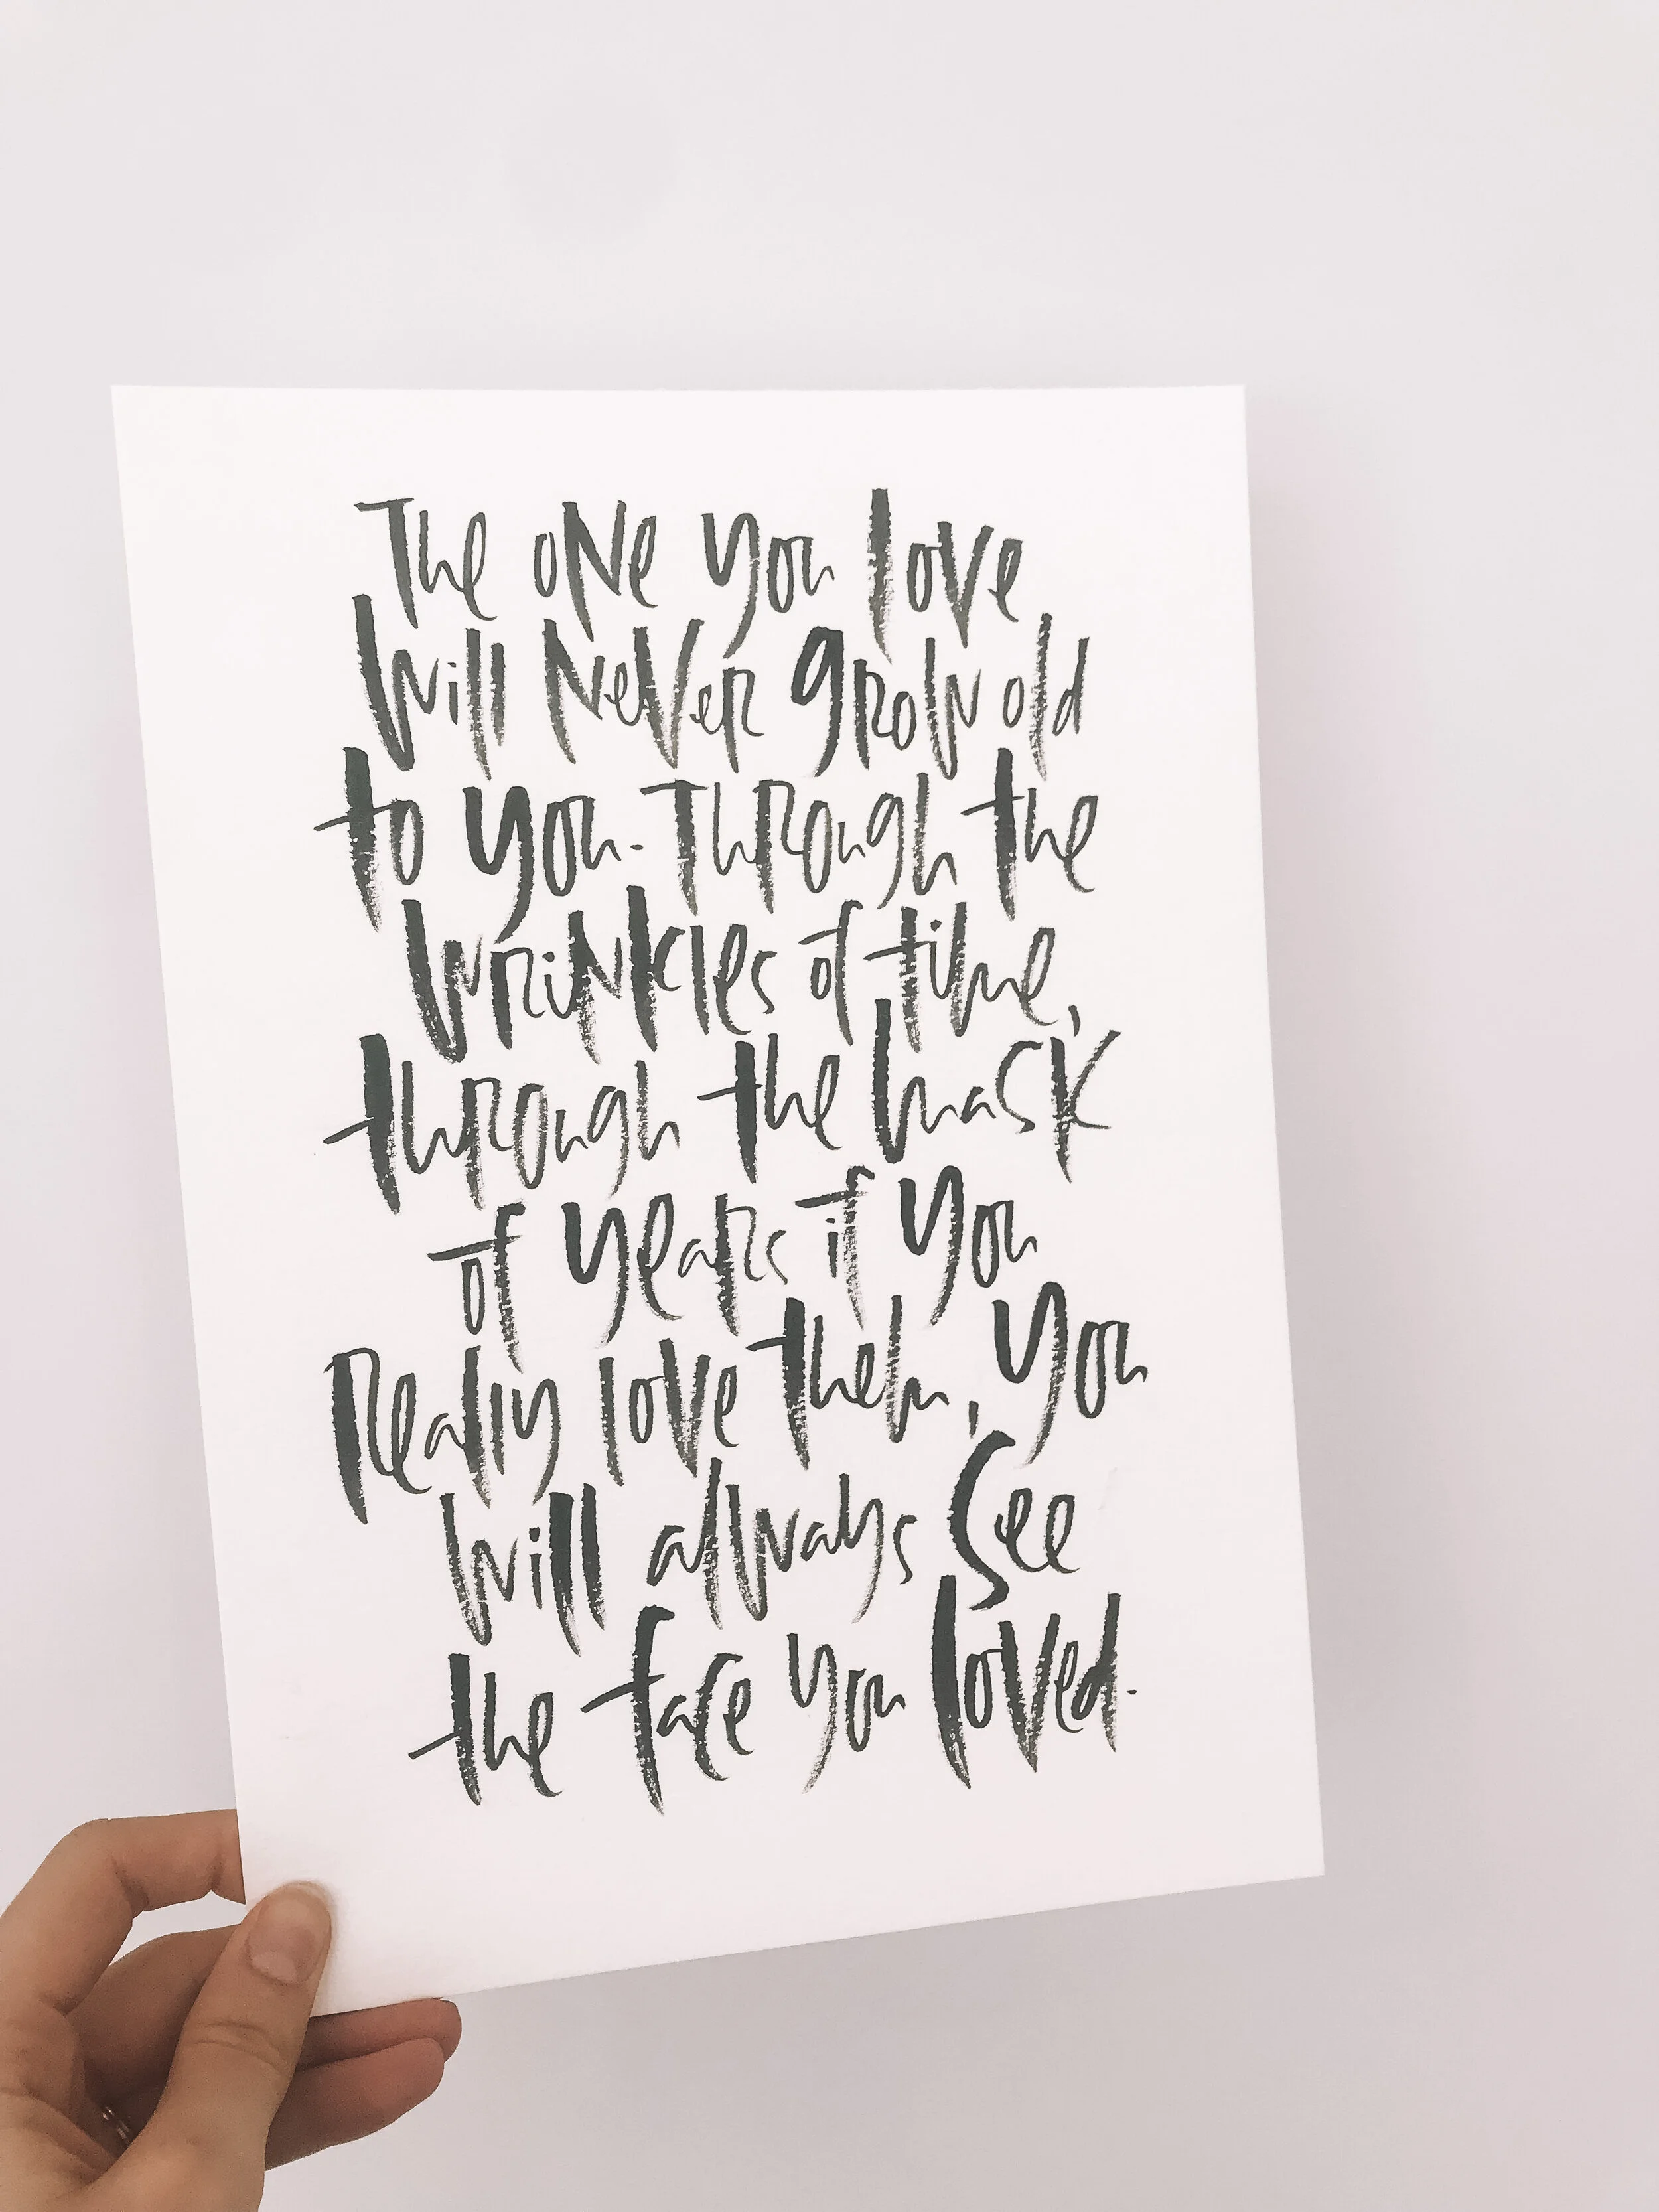 The one you love
will never grow old
to you. Through the
wrinkles of time,
through the mask
of years if you
really love them, you
will always see
the face you loved.